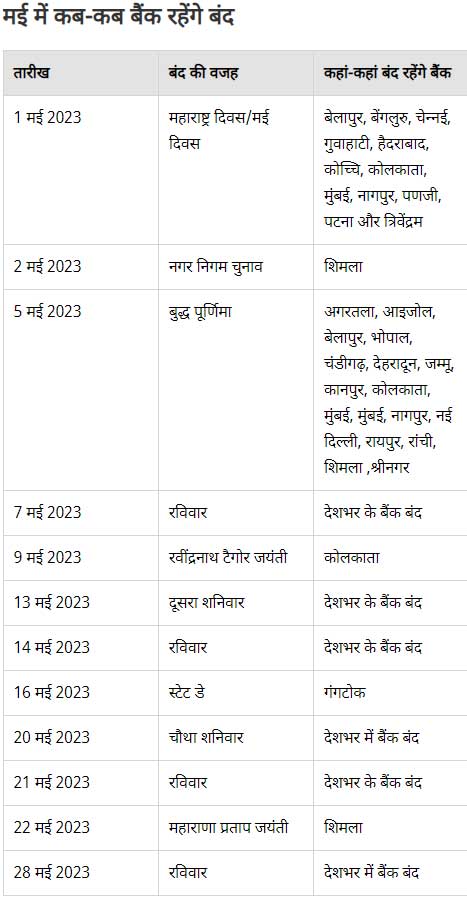 मई में कब-कब बैंक रहेंगे बंद
तारीख बंद की वजह कहां-कहां बंद रहेंगे बैंक
1 मई 2023 महाराष्ट्र दिवस/मई बेलापुर, बेंगलुरु, चेन्नई,
दिवस गुवाहाटी, हैदराबाद,
कोच्चि, कोलकाता,
मुंबई, नागपुर, पणजी,
पटना और त्रिवेंद्रम
2 मई 2023 नगर निगम चुनाव शिमला
5 मई 2023 बुद्ध पूर्णिमा अगरतला, आइजोल,
बेलापुर, भोपाल,
चंडीगढ़, देहरादून, जम्मू,
कानपुर, कोलकाता,
मुंबई, मुंबई, नागपुर, नई
दिल्ली, रायपुर, रांची,
शिमला ,श्रीनगर
7 मई 2023 रविवार देशभर के बैंक बंद
9 मई 2023 रवींद्रनाथ टैगोर जयंती कोलकाता
13 मई 2023 दूसरा शनिवार देशभर के बैंक बंद
14 मई 2023 रविवार देशभर के बैंक बंद
16 मई 2023 स्टेट डे गंगटोक
20 मई 2023 चौथा शनिवार देशभर में बैंक बंद
21 मई 2023 रविवार देशभर के बैंक बंद
22 मई 2023 महाराणा प्रताप जयंती शिमला
28 मई 2023 रविवार देशभर में बैंक बंद